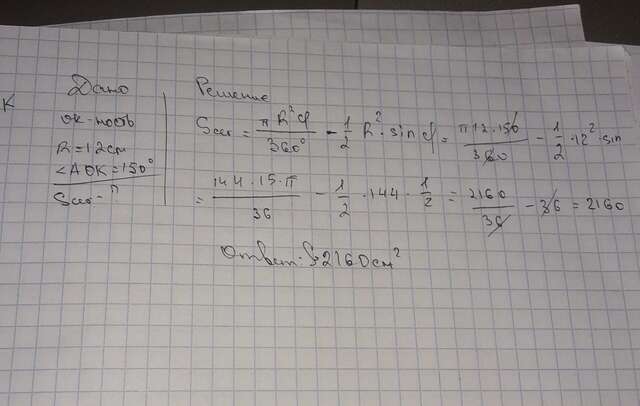 К
Дано
ок-ность
R=12см
∠AOK=150°
Sсег-?
Решение
Sсег = πR²φ/360° - 1/2 R²·sin φ = π12·150/360 - 1/2·12²·sin
= 144·15·π/36 - 1/2·144·1/2 = 2160/36 - 36 = 2160
Ответ: S=2160см²